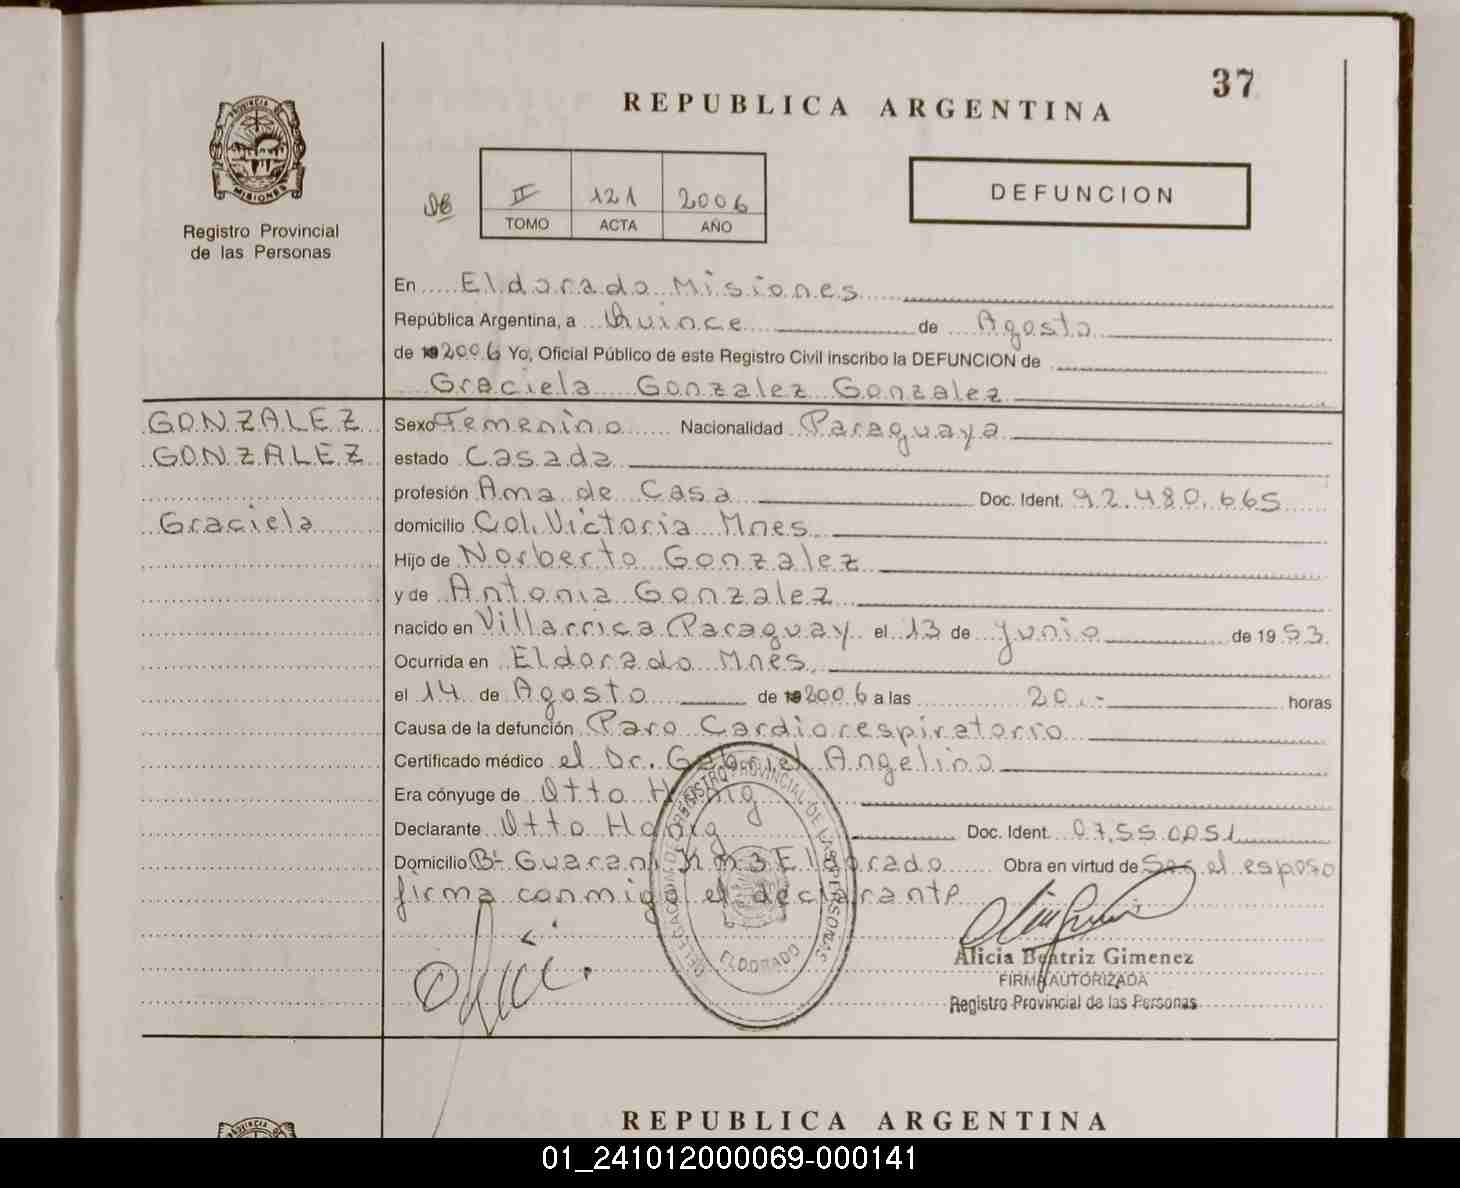 37
REPUBLICA ARGENTINA
DEFUNCION
II 121 2006
TOMO ACTA AÑO
PROVINCIA DE
MISIONES
Registro Provincial
de las Personas
En Eldorado Misiones
República Argentina, a Quince de Agosto
de 19 2006 Yo, Oficial Público de este Registro Civil inscribo la DEFUNCION de
Graciela Gonzalez Gonzalez
GONZALEZ
GONZALEZ
Graciela
Sexo Femenino Nacionalidad Paraguaya
estado Casada
profesión Ama de Casa Doc. Ident. 92.480.665
domicilio Col. Victoria Mnes.
Hijo de Norberto Gonzalez
y de Antonia Gonzalez
nacido en Villarrica Paraguay el 13 de Junio de 19 53
Ocurrida en Eldorado Mnes.
el 14 de Agosto de 19 2006 a las 20.- horas
Causa de la defunción Paro Cardiorespiratorio
Certificado médico el Dr. Gabriel Angelino
Era cónyuge de Otto Honig
Declarante Otto Honig Doc. Ident. 07.550.051
Domicilio Bº Guarani Km 3 Eldorado Obra en virtud de Ser el esposo
firma conmigo el declarante
DELEGACION DEL REGISTRO PROVINCIAL DE LAS PERSONAS
ELDORADO
Alicia Beatriz Gimenez
FIRMA AUTORIZADA
Registro Provincial de las Personas
PROVINCIA DE
REPUBLICA ARGENTINA
01_241012000069-000141